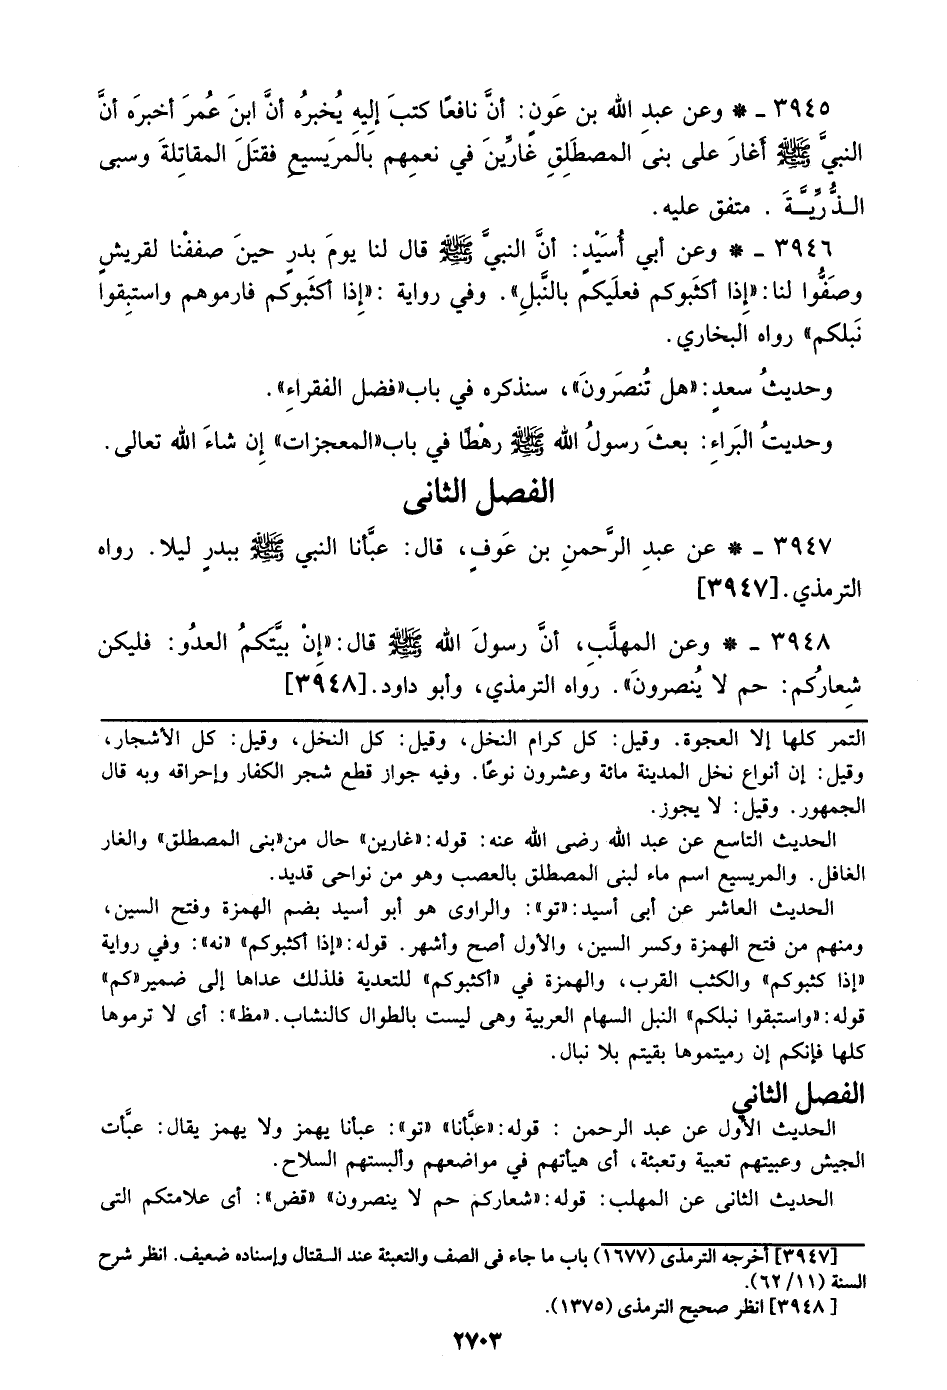 ٣٩٤٥ ـ * وعن عبدِ الله بن عَونٍ: أنَّ نافعًا كتبَ إِليهِ يُخبرُه أنَّ ابنَ عُمرَ أخبرَه أنَّ
النبيَّ ﷺ أغارَ على بنى المصطَلِقِ غارِّينَ في نعمِهم بالمرَيسيعِ فقتَلَ المقاتلةَ وسبى
الـذُّرِّيَّـةَ . متفق عليه.
٣٩٤٦ ـ * وعن أبي أُسَيْدٍ: أنَّ النبيَّ ﷺ قال لنا يومَ بدرٍ حينَ صففْنا لقريشٍ
وصَفُّوا لنا:«إِذا أكثَبوكم فعلَيكم بالنَّبلِ». وفي رواية :«إِذا أكثَبوكم فارموهم واستبِقوا
نَبلكم» رواه البخاري.
وحديثُ سعدٍ:«هل تُنصَرونَ»، سنذكره في باب«فضل الفقراءِ».
وحديثُ البَراءِ: بعثَ رسولُ الله ﷺ رهْطًا في باب«المعجزات» إِن شاءَ الله تعالى.
الفصل الثانى
٣٩٤٧ ـ * عن عبدِ الرَّحمنِ بن عَوفٍ، قال: عبَّأنا النبي ﷺ ببدرٍ ليلا. رواه
الترمذي.[٣٩٤٧]
٣٩٤٨ ـ * وعن المهلَّبِ، أنَّ رسولَ الله ﷺ قال:«إِنْ بيَّتَكمُ العدُو: فليكن
شِعارُكم: حم لا يُنصرونَ». رواه الترمذي، وأبو داود.[٣٩٤٨]
التمر كلها إلا العجوة. وقيل: كل كرام النخل، وقيل: كل النخل، وقيل: كل الأشجار،
وقيل: إن أنواع نخل المدينة مائة وعشرون نوعًا. وفيه جواز قطع شجر الكفار وإحراقه وبه قال
الجمهور. وقيل: لا يجوز.
الحديث التاسع عن عبد الله رضى الله عنه: قوله:«غارين» حال من«بنى المصطلق» والغار
الغافل. والمريسيع اسم ماء لبنى المصطلق بالعصب وهو من نواحى قديد.
الحديث العاشر عن أبى أسيد:«تو»: والراوى هو أبو أسيد بضم الهمزة وفتح السين،
ومنهم من فتح الهمزة وكسر السين، والأول أصح وأشهر. قوله:«إذا أكثبوكم» «نه»: وفي رواية
«إذا كثبوكم» والكثب القرب، والهمزة في «أكثبوكم» للتعدية فلذلك عداها إلى ضمير«كم»
قوله:«واستبقوا نبلكم» النبل السهام العربية وهى ليست بالطوال كالنشاب.«مظ»: أى لا ترموها
كلها فإنكم إن رميتموها بقيتم بلا نبال.
الفصل الثاني
الحديث الأول عن عبد الرحمن : قوله:«عبَّأنا» «تو»: عبأنا يهمز ولا يهمز يقال: عبَّأت
الجيش وعبيتهم تعبية وتعبئة، أى هيأتهم في مواضعهم وألبستهم السلاح.
الحديث الثانى عن المهلب: قوله:«شعاركم حم لا ينصرون» «قض»: أى علامتكم التى
[٣٩٤٧] أخرجه الترمذى (١٦٧٧) باب ما جاء فى الصف والتعبئة عند الـقتال وإسناده ضعيف. انظر شرح
السنة (١١/ ٦٢).
[٣٩٤٨] انظر صحيح الترمذى (١٣٧٥).
٢٧٠٣